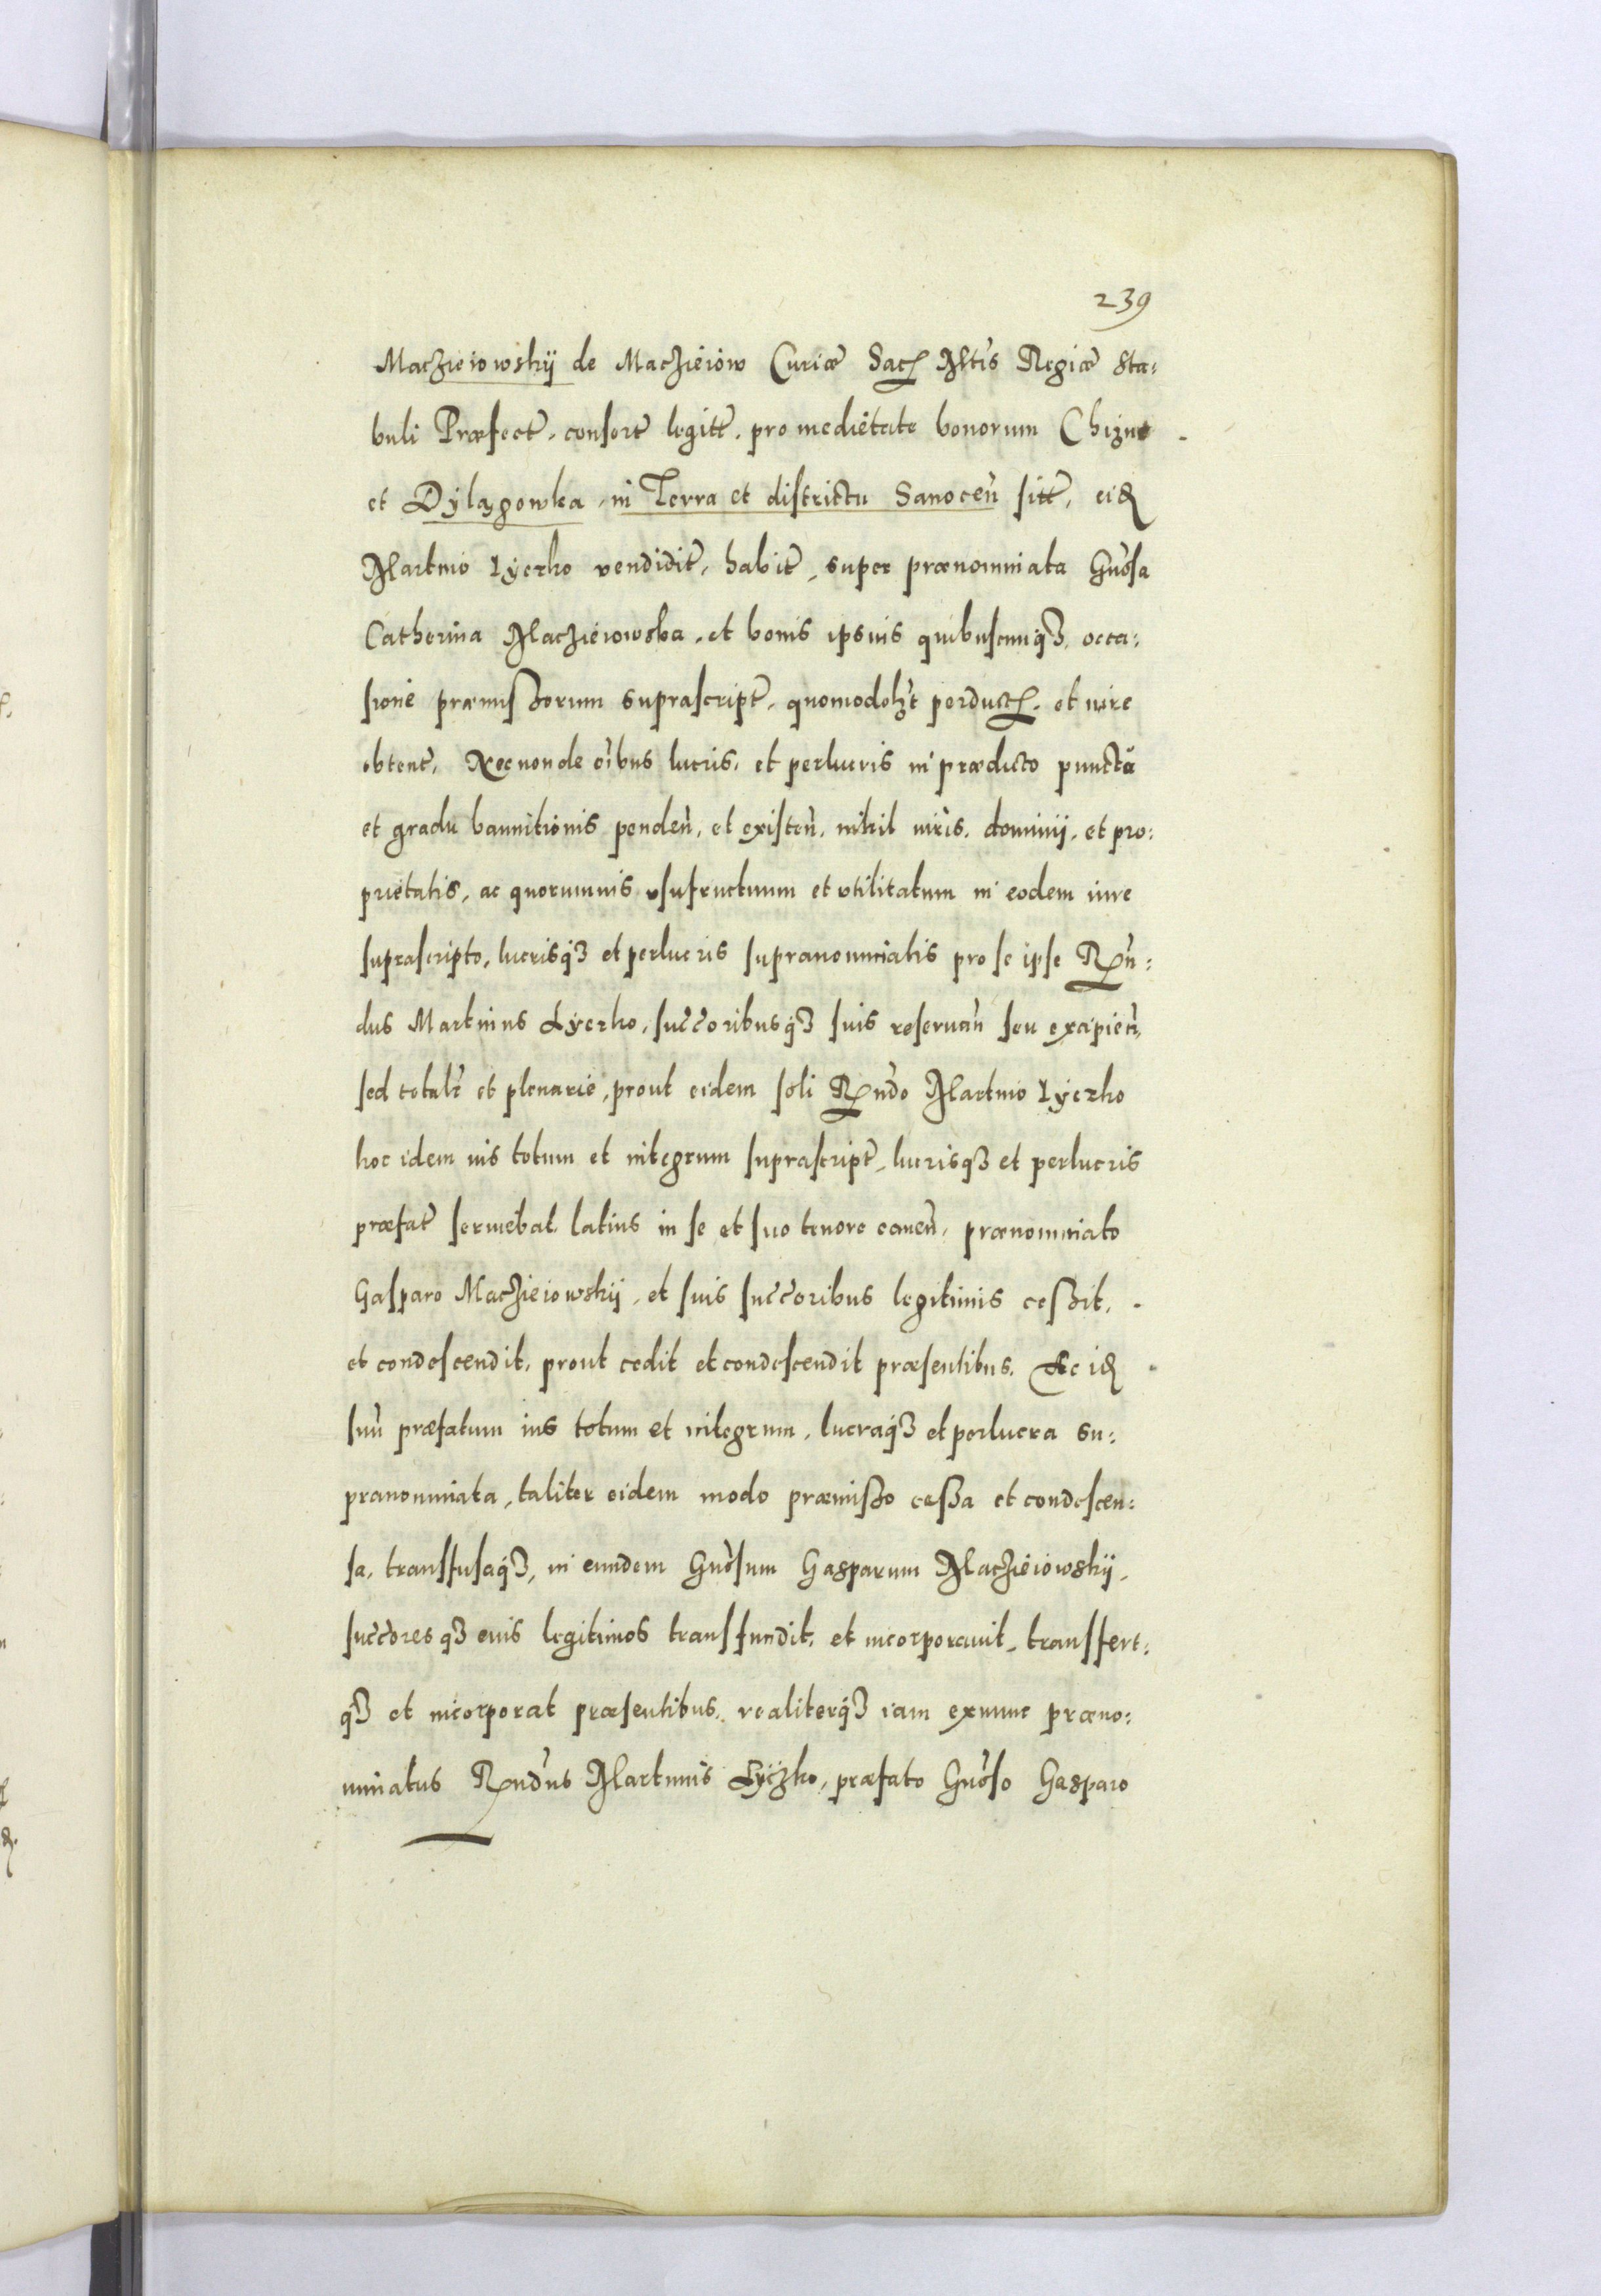 239
Maczieiowskÿ de Maczieiow Curiæ Sac Mtis Regiæ Sta:
buli Præfect, consort legitt, pro medietate bonorum Chizne
et Dÿlągowka, in Terra et districtu Sanocen̄ sitt, eid
Martino Lyczko vendidit, habit, super prænominata Gnosa
Catherina Macziéiowska, et bonis ipsius quibuscunq3, occa:
sione præmissorum suprascript, quomodolzt perduct, et iure
obtent, Necnon de oibus lucris, et perlucris in prædicto puncto
et gradu bannitionis penden̄, et existen̄, nihil iuris, dominÿ, et pro:
prietatis, ac quorumuis vsufructuum et vtilitatum in eodem iure
suprascripto, lucrisq3 et perlucris supranominatis pro se ipse Rn̄:
dus Martinus Lÿczko, succoribusq3 suis reseruan̄ seu excipien̄,
sed totalr et plenarie, prout eidem soli Rn̄do Martino Lyczko
hoc idem ius totum et integrum suprascript, lucrisq3 et perlucris
præfat seruiebat latius in se et suo tenore canen̄, prænominato
Gasparo Maczieiowskÿ, et suis succoribus legitimis cessit,
et condescendit, prout cedit et condescendit præsentibus. Ac id
suū præfatum ius totum et integrum, lucraq3 et perlucra su:
pranominata, taliter eidem modo præmisso cessa et condescen:
sa, transfusaq3, in eundem Gnosum Gasparum Macziéiowskÿ,
succoresq3 eius legitimos transfundit, et incorporauit, transfert:
q3 et incorporat præsentibus, realiterq3 iam exnunc præno:
minatus Rndus Martinus Lÿczko, præfato Gnoso Gasparo